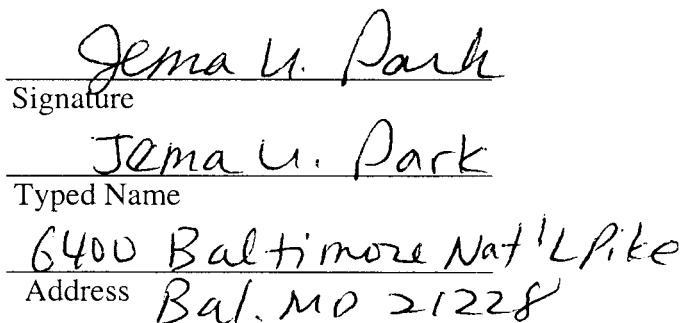 Jema U. Park
Signature
Jema U. Park
Typed Name
6400 Baltimore Nat'l Pike
Address Bal. MD 21228